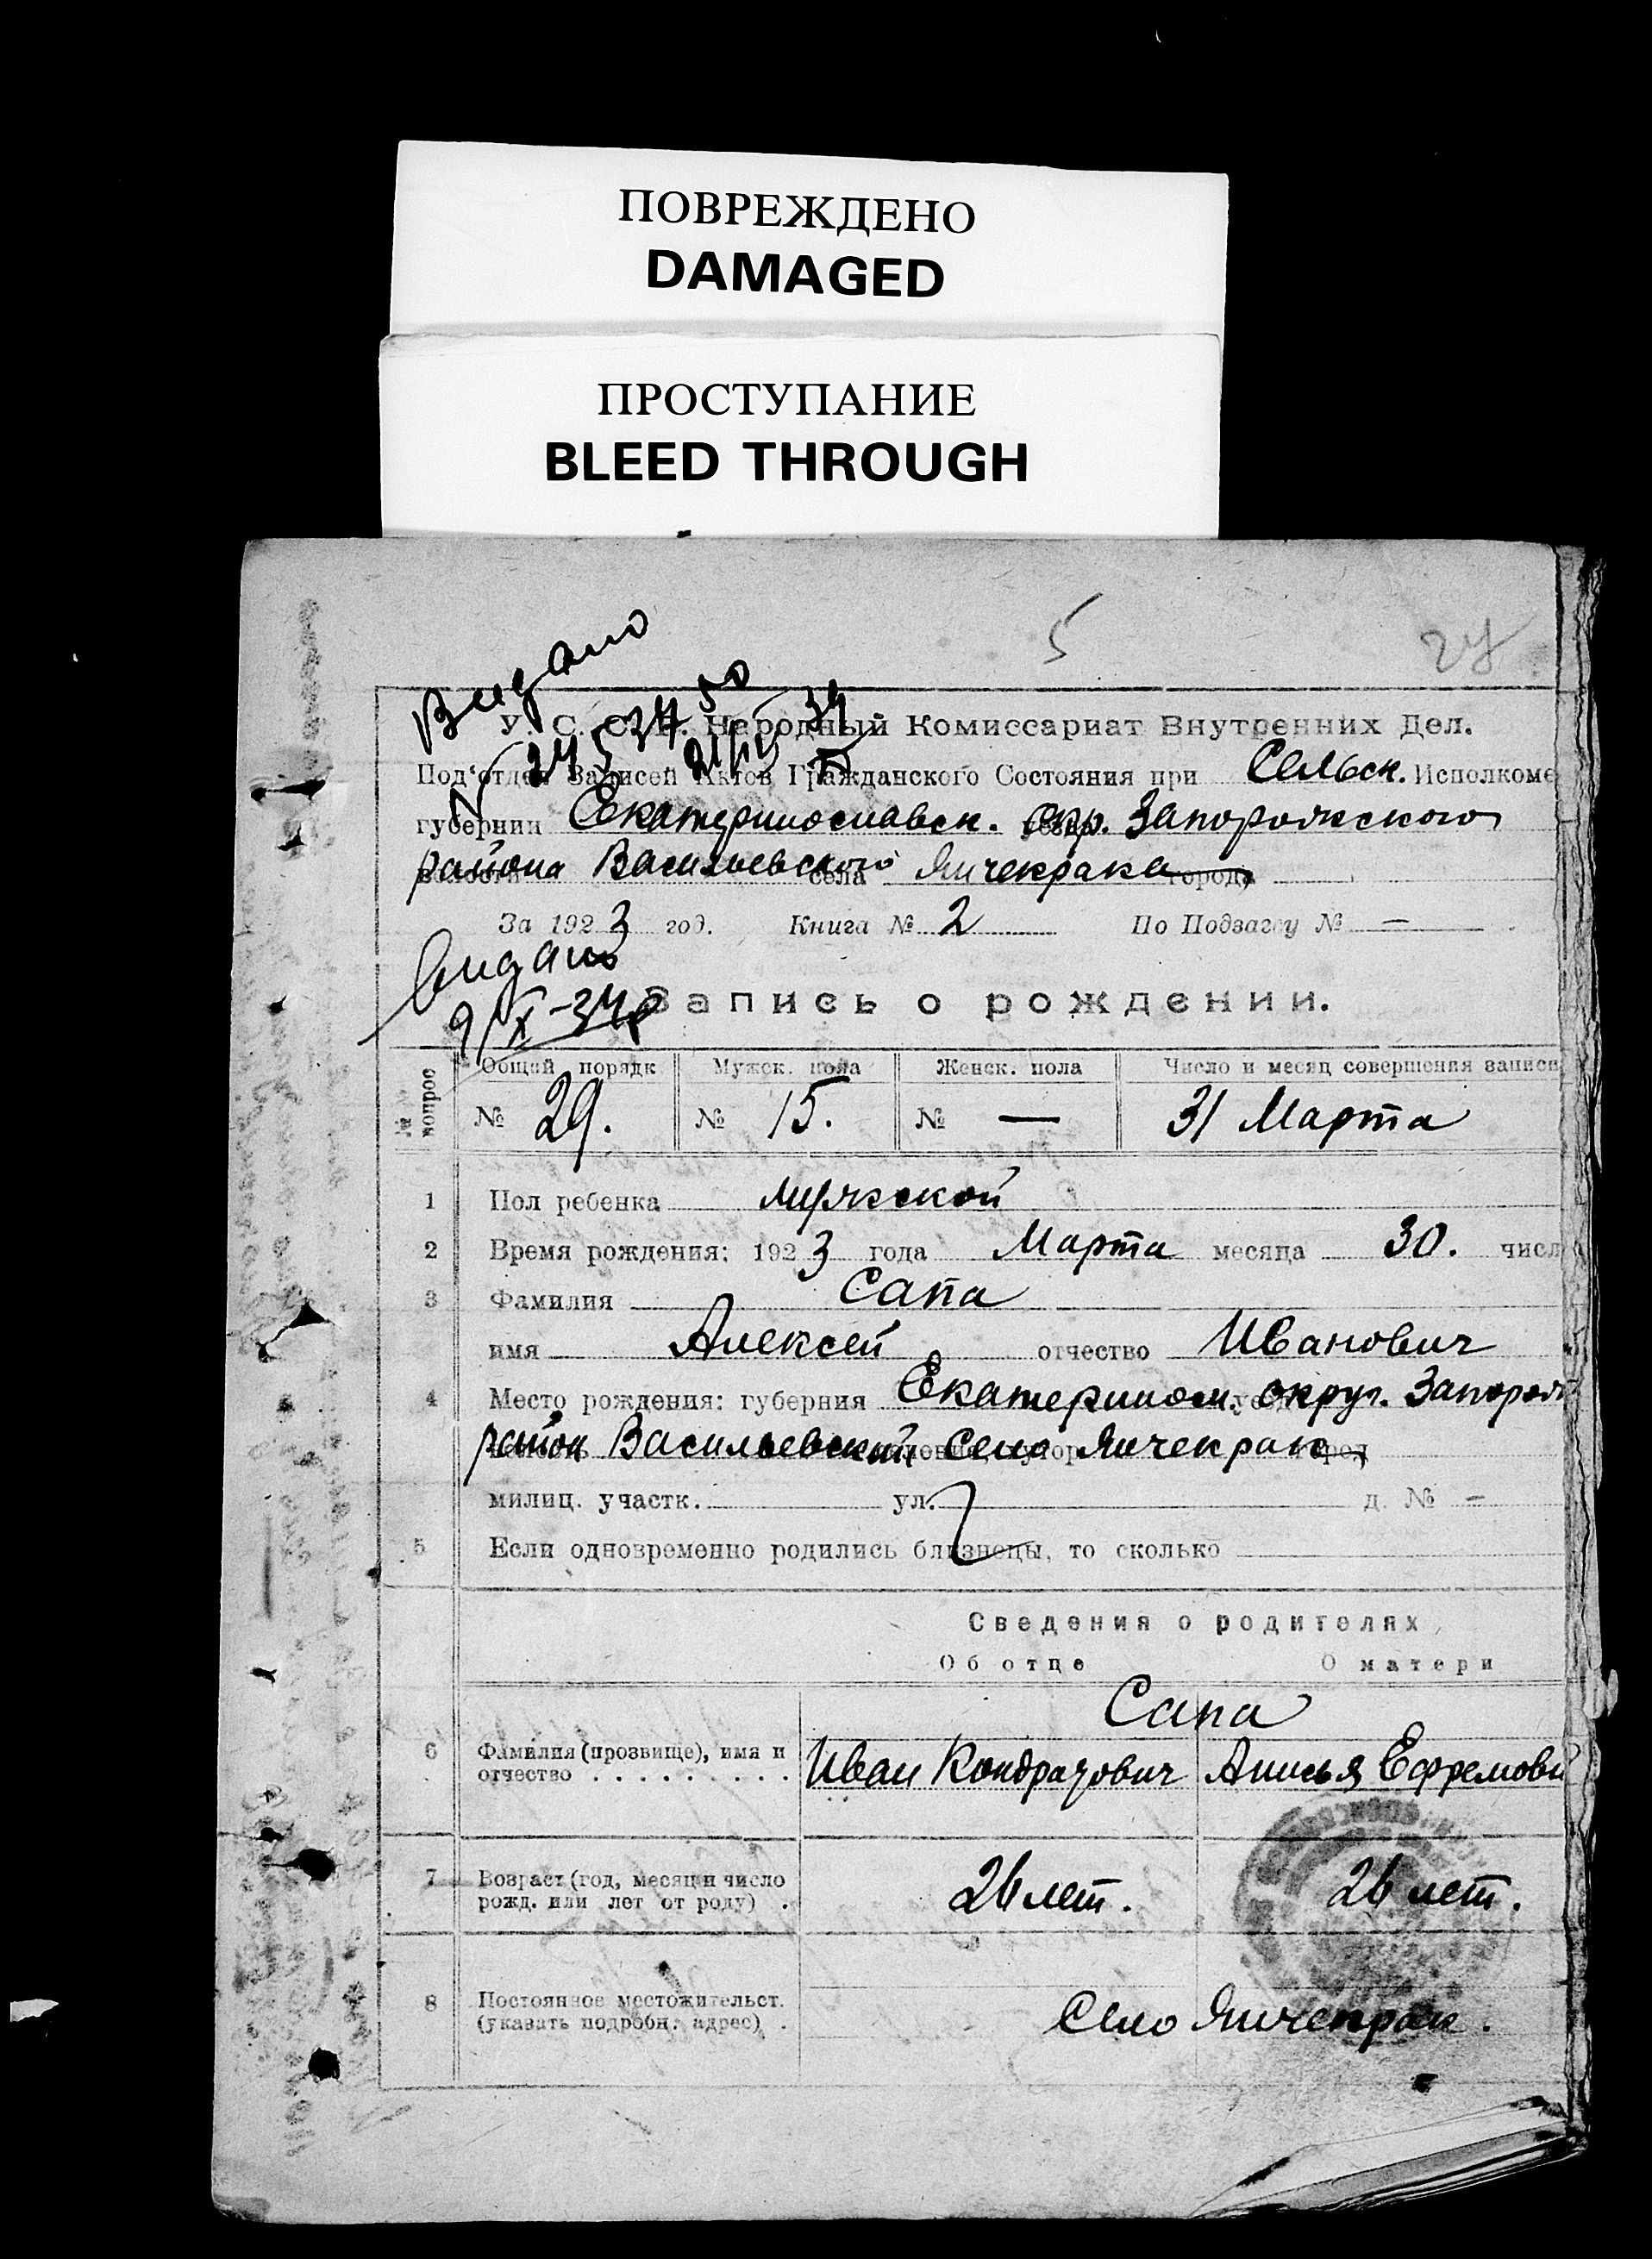 ПОВРЕЖДЕНО
DAMAGED
ПРОСТУПАНИЕ
BLEED THROUGH
5
Видано
У. С. С. Р. Народный Комиссариат Внутренних Дел.
Под'отдел Записей Актов Гражданского Состояния при Сельск. Исполкоме
губернии Екатеринославск. окр. Запорожского
района Васильевского села Янчекрака города
За 1923 год. Книга № 2 По Подзагсу № —
видано
9/X-34р
Запись о рождении.
№№ вопрос
Общий порядк № 29.
Мужск. пола № 15.
Женск. пола № —
Число и месяц совершения записи 31 Марта
1 Пол ребенка мужской
2 Время рождения: 1923 года Марта месяца 30. числ
3 Фамилия Сапа
имя Алексей отчество Иванович
4 Место рождения: губерния Екатеринос. округ. Запорож
район Васильевский село Янчекрак
милиц. участк. ул. д. № -
5 Если одновременно родились близнецы, то сколько
Сведения о родителях
Об отце О матери
Сапа
6 Фамилия (прозвище), имя и отчество Иван Кондратович Анисья Ефремовн
7 Возраст (год, месяц и число рожд. или лет от роду) 26 лет. 26 лет.
8 Постоянное местожительст. (указать подробн. адрес) Село Янчекрак.